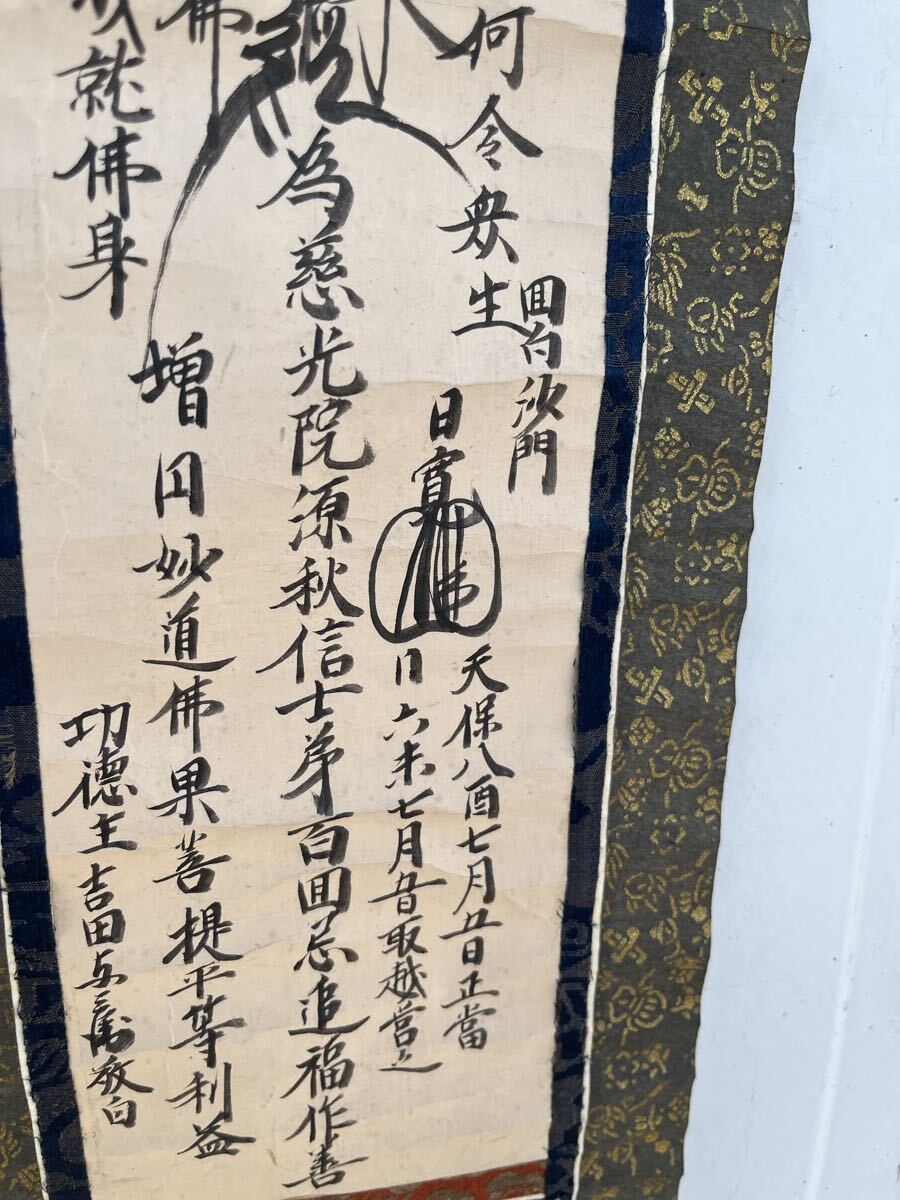 何令衆生
回向沙門
日寛
天保八酉七月五日正當
日六未七月五日取越當之
為慈光院源秋信士第百回忌追福作善
佛
増円妙道佛果菩提平等利益
就佛身
功徳主吉田与三衛敬白